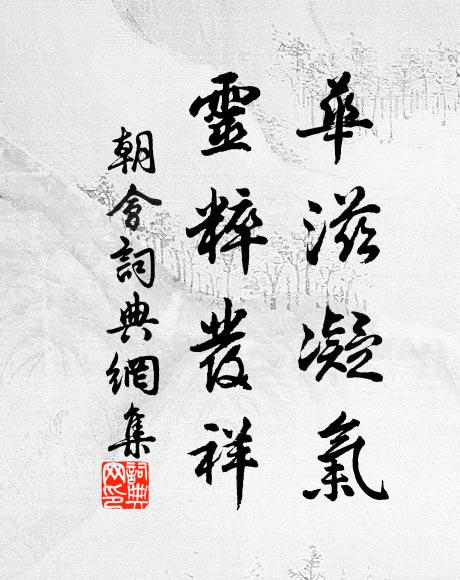 華滋凝氣
靈粹發祥
朝會詞典網集
詞典網印